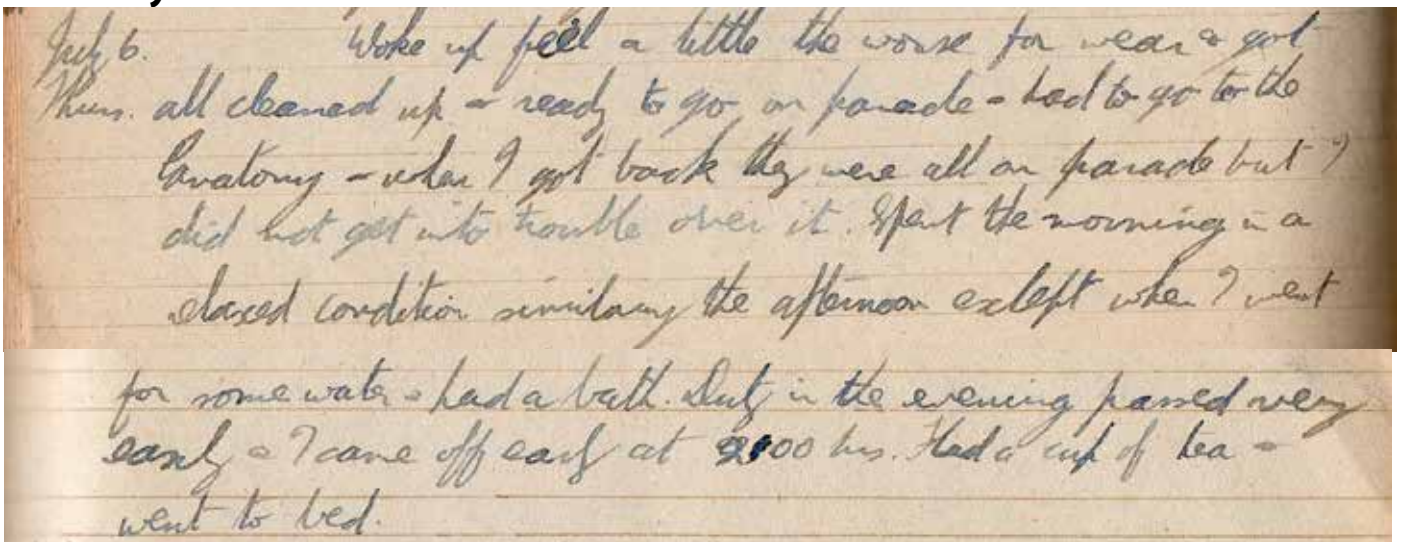 July 6. Woke up feel a little the worse for wear & got
Thurs. all cleaned up & ready to go on parade & had to go to the
lavatory & when I got back they were all on parade but I
did not get into trouble over it. Spent the morning in a
relaxed condition similarly the afternoon except when I went
for some water & had a bath. Duty in the evening passed very
easily & I came off early at 00 hrs. Had a cup of tea &
went to bed.